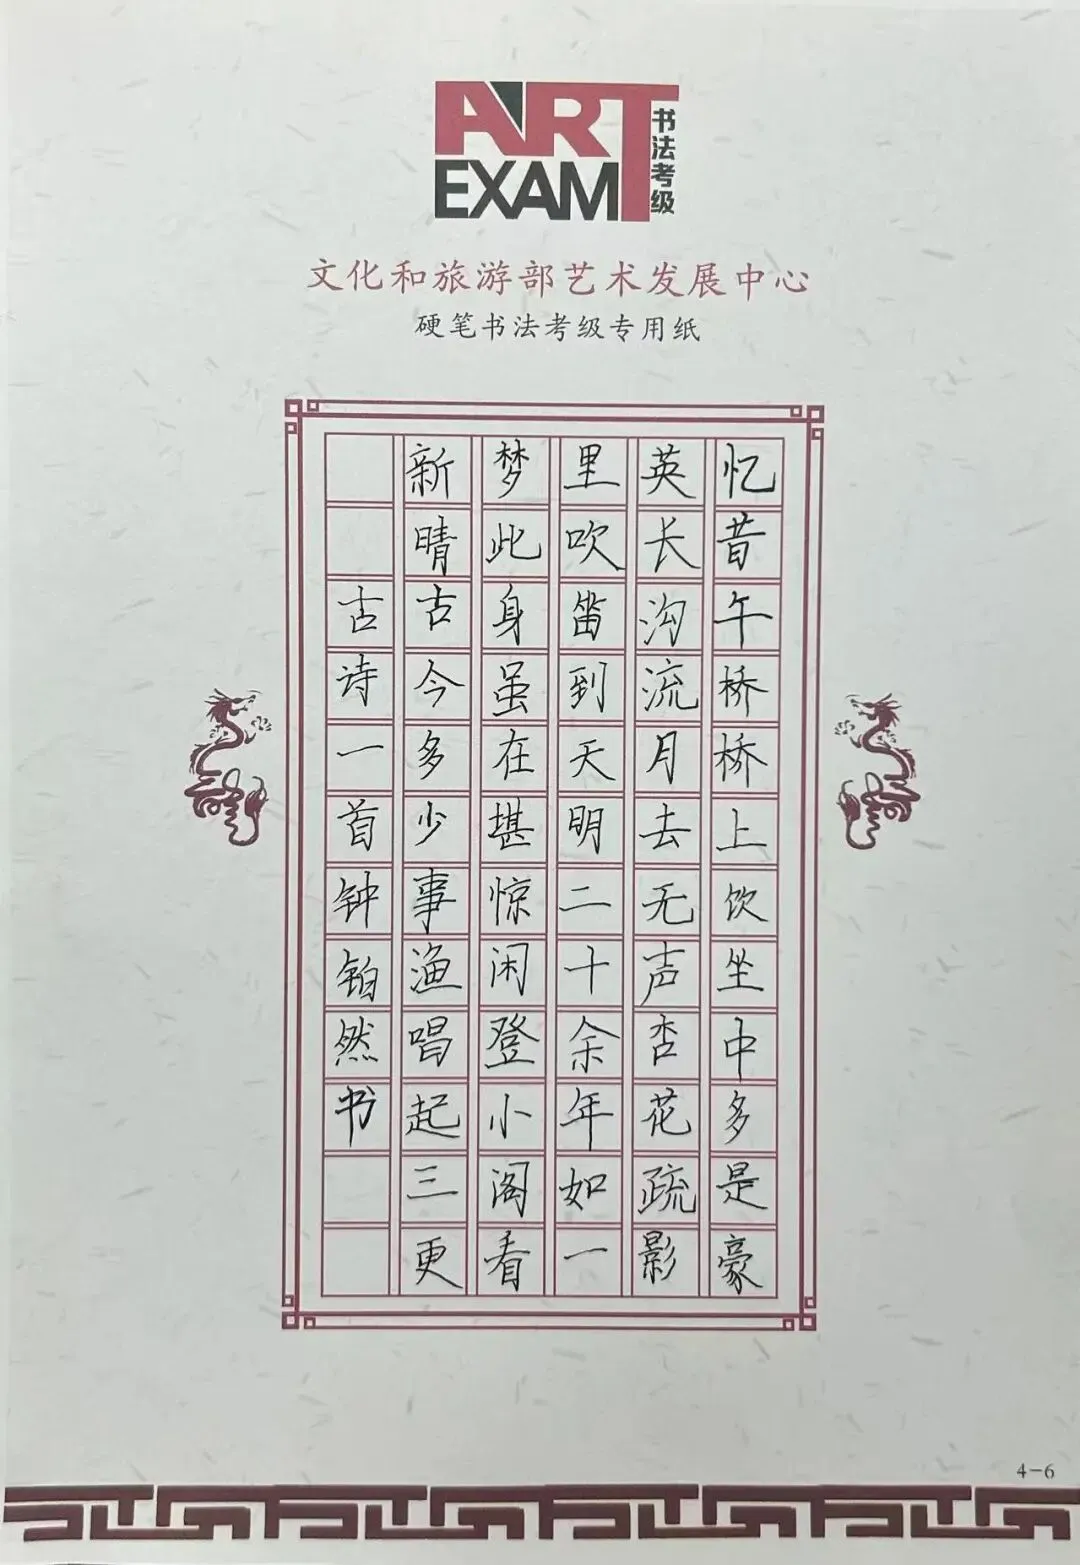 ART
EXAM
书法考级
文化和旅游部艺术发展中心
硬笔书法考级专用纸
忆昔午桥桥上饮坐中多是豪
英长沟流月去无声杏花疏影
里吹笛到天明二十余年如一
梦此身虽在堪惊闲登小阁看
新晴古今多少事渔唱起三更
古诗一首钟铂然书
4-6